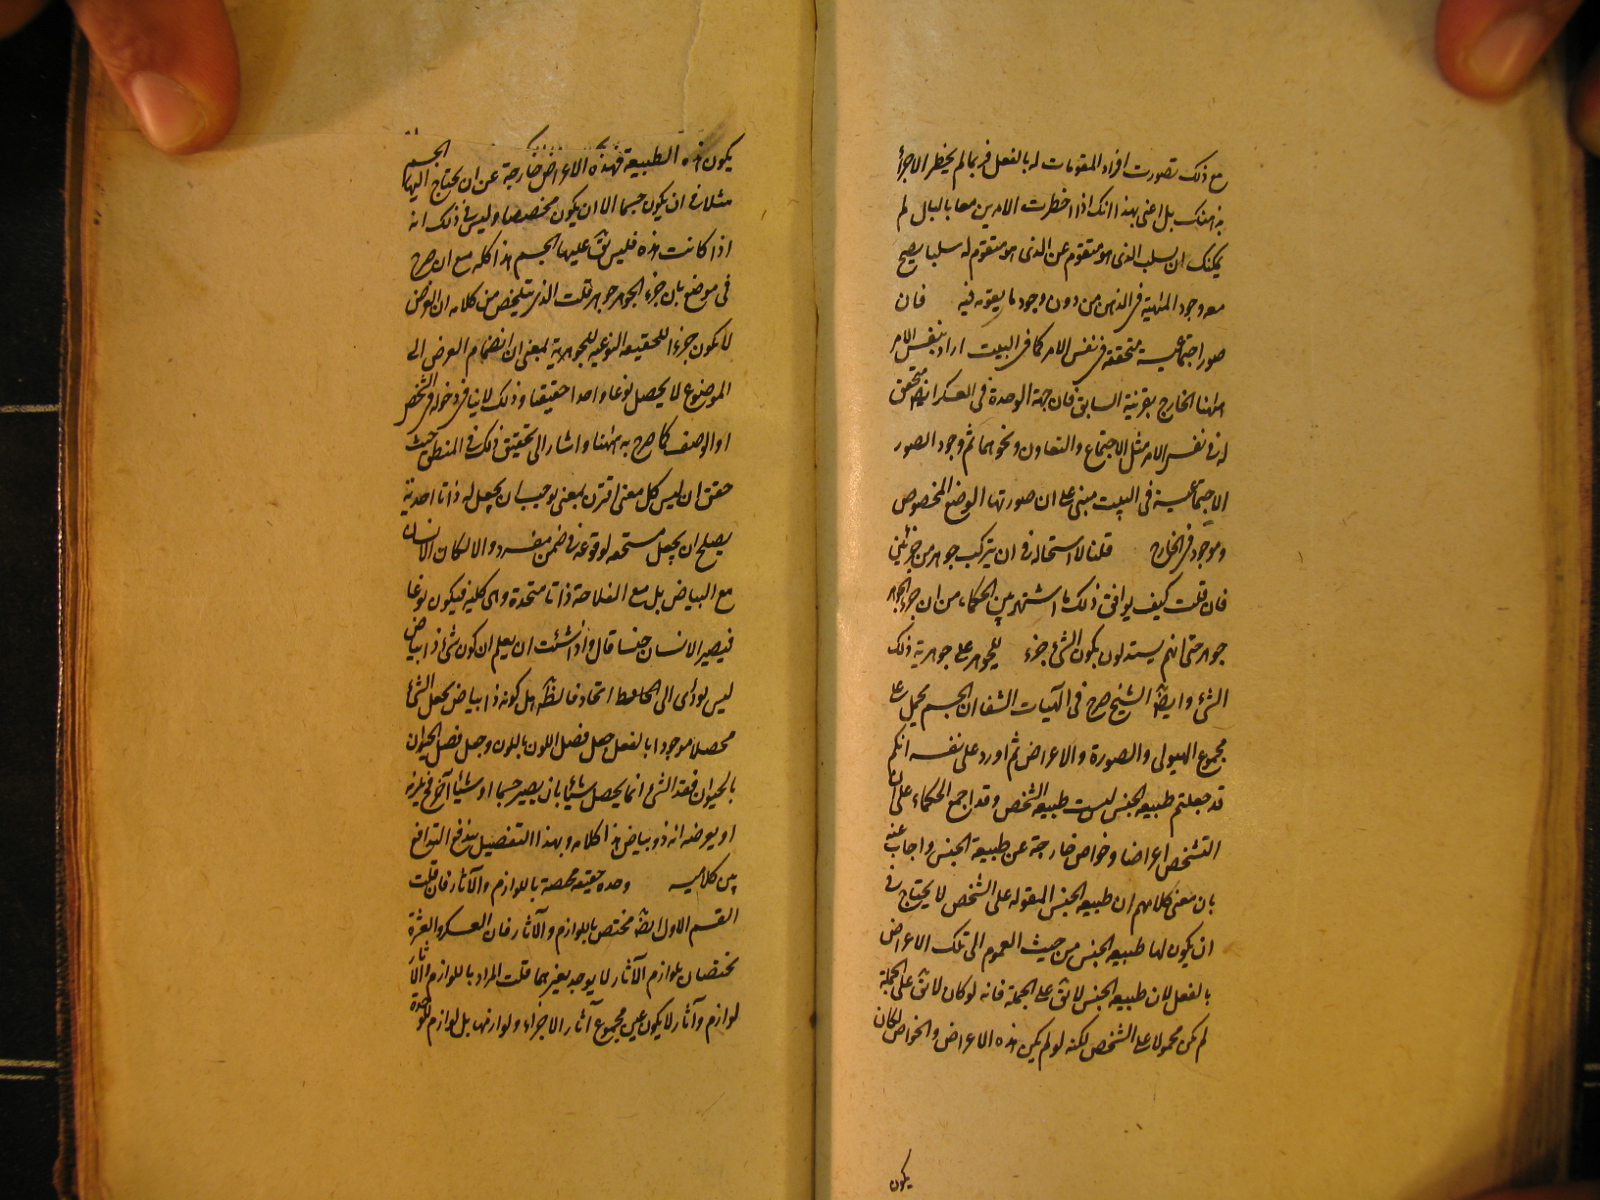 مع ذلك تصورت افراد المقومات له بالفعل فربما لم يخطر الاجزاء
بذهنك بل اعنى بهذا انك اذا اخطرت الامرين معا بالبال لم
يمكنك ان تسلب الذى هو متقوم عن الذى هو متقوم له سلبا يصح
معه وجود الماهية فى الذهن من دون وجود ما يقومه فيه فان
صورا جتماعية متحققة فى نفس الامر كما فى البيت اراد بنفس الامر
ههنا الخارج بقرنية السابق فان جهة الوحدة فى العسكر ايضا متحقق
له فى نفس الامر مثل الاجتماع والتعاون ونحوهما ثم وجود الصور
الاجتماعية فى البيت مبنى على ان صورتها الوضع المخصوص
وموجود فى الخارج قلنا لا استحالة فى ان يتركب جوهر من جزئين
فان قلت كيف يوافق ذلك ما اشتهر بين الحكماء من ان جزء الجوهر
جوهر حتى انهم يستدلون بكون الشئ جزء للجوهر على جوهرية ذلك
الشئ وايضا الشيخ صرح فى الهيات الشفا ان الجسم يحمل على
مجموع الهيولى والصورة والاعراض ثم اورد على نفسه انكم
قد جعلتم طبيعة الجنس ليست طبيعة الشخص وقد اجمع الحكماء على ان
التشخص اعراضا وخواص خارجة عن طبيعة الجنس واجاب عنه
بان معنى كلامهم ان طبيعة الجنس المقولة على الشخص لا يحتاج فى
ان يكون لها طبيعة الجنس من حيث العموم الى تلك الاعراض
بالفعل لان طبيعة الجنس لا يق على الجملة فانه لو كان لا يق على الجملة
لم يكن محمولا على الشخص لكنه لو لم يكن هذه الاعراض والخواص لكان
يكون
يكون هذه الطبيعة فهذه الاعراض خارجة عن ان يحتاج اليها الجسم
مثلا فى ان يكون جسما الا ان يكون مخصصا وليس فى ذلك انه
اذا كانت هذه فليس يق عليها الجسم هذا كله مع ان صرح
فى موضع بان جزء الجوهر جوهر قلت الذى يتلخص من كلامه ان العرض
لا يكون جزءا للحقيقة النوعية للجوهرية بمعنى ان انضمام العرض الى
الموضوع لا يحصل نوعا واحدا حقيقيا وذلك لا ينافى دخوله فى الشخص
او الوصف كما صرح به ههنا واشار الى تحقيق ذلك فى المنطق حيث
حقق ان ليس كل معنى اقترن بمعنى يوجب ان يجعل له ذاتا احدية
يصلح ان يجعل مستحقه لوقوعه فى ضمن مفرد والا لكان الانسان
مع البياض بل مع الفلاحة ذاتا متحدة وهى كلية فيكون نوعا
فيصير الانسان جنسا قال واذا شئت ان يعلم ان كون شئ ذا بياض
ليس يؤدى الى اتحاد فانظر هل كونه ذا بياض يجعل الشئ
محصلا موجودا بالفعل جعل فصل اللون باللون وجعل فصل الحيوان
بالحيوان فقد الشئ انما يحصل شيئا بان يصير جسما او شيئا آخر ثم يلزمه
او يعرضه انه ذو بياض هذا كلامه وبهذا التفصيل يندفع التدافع
بين كلاميه وحدة حقيقة مختصة باللوازم والآثار فان قلت
القسم الاول ايضا مختص باللوازم والآثار فان العسكر والعشرة
يختصان بلوازم الآثار لا يوجد بغيرهما قلت المراد باللوازم والآثار
لوازم وآثار لا يكون عين مجموع آثار الاجزاء ولوازمها بل لوازم للوحدة